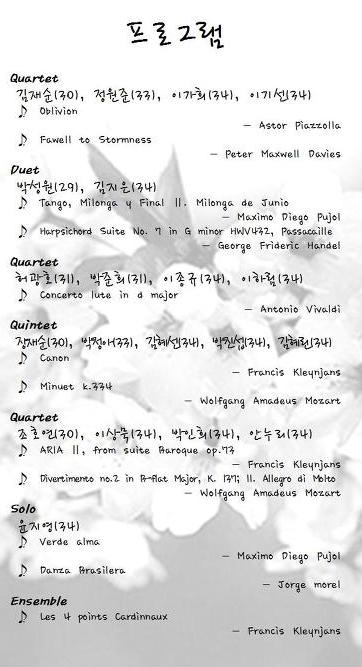 프로그램
Quartet
김재순(30), 정원준(33), 이가희(34), 이기선(34)
♪ Oblivion
- Astor Piazzolla
♪ Fawell to Stormness
- Peter Maxwell Davies
Duet
박성원(29), 김지은(34)
♪ Tango, Milonga y Final II. Milonga de Junio
- Maximo Diego Pujol
♪ Harpsichord Suite No. 7 in G minor HWV432, Passacaille
- George Frideric Handel
Quartet
허광호(31), 박준희(31), 이종규(34), 이하림(34)
♪ Concerto lute in d major
- Antonio Vivaldi
Quintet
장재순(30), 박정아(33), 김혜선(34), 박진섭(34), 김혜린(34)
♪ Canon
- Francis Kleynjans
♪ Minuet k.334
- Wolfgang Amadeus Mozart
Quartet
조호연(30), 이상묵(34), 박인희(34), 안누리(34)
♪ ARIA II, from suite Baroque op.73
- Francis Kleynjans
♪ Divertimento no.2 in B-flat Major, K. 137; II. Allegro di Molto
- Wolfgang Amadeus Mozart
Solo
윤지영(34)
♪ Verde alma
- Maximo Diego Pujol
♪ Danza Brasilera
- Jorge morel
Ensemble
♪ Les 4 points Cardinnaux
- Francis Kleynjans